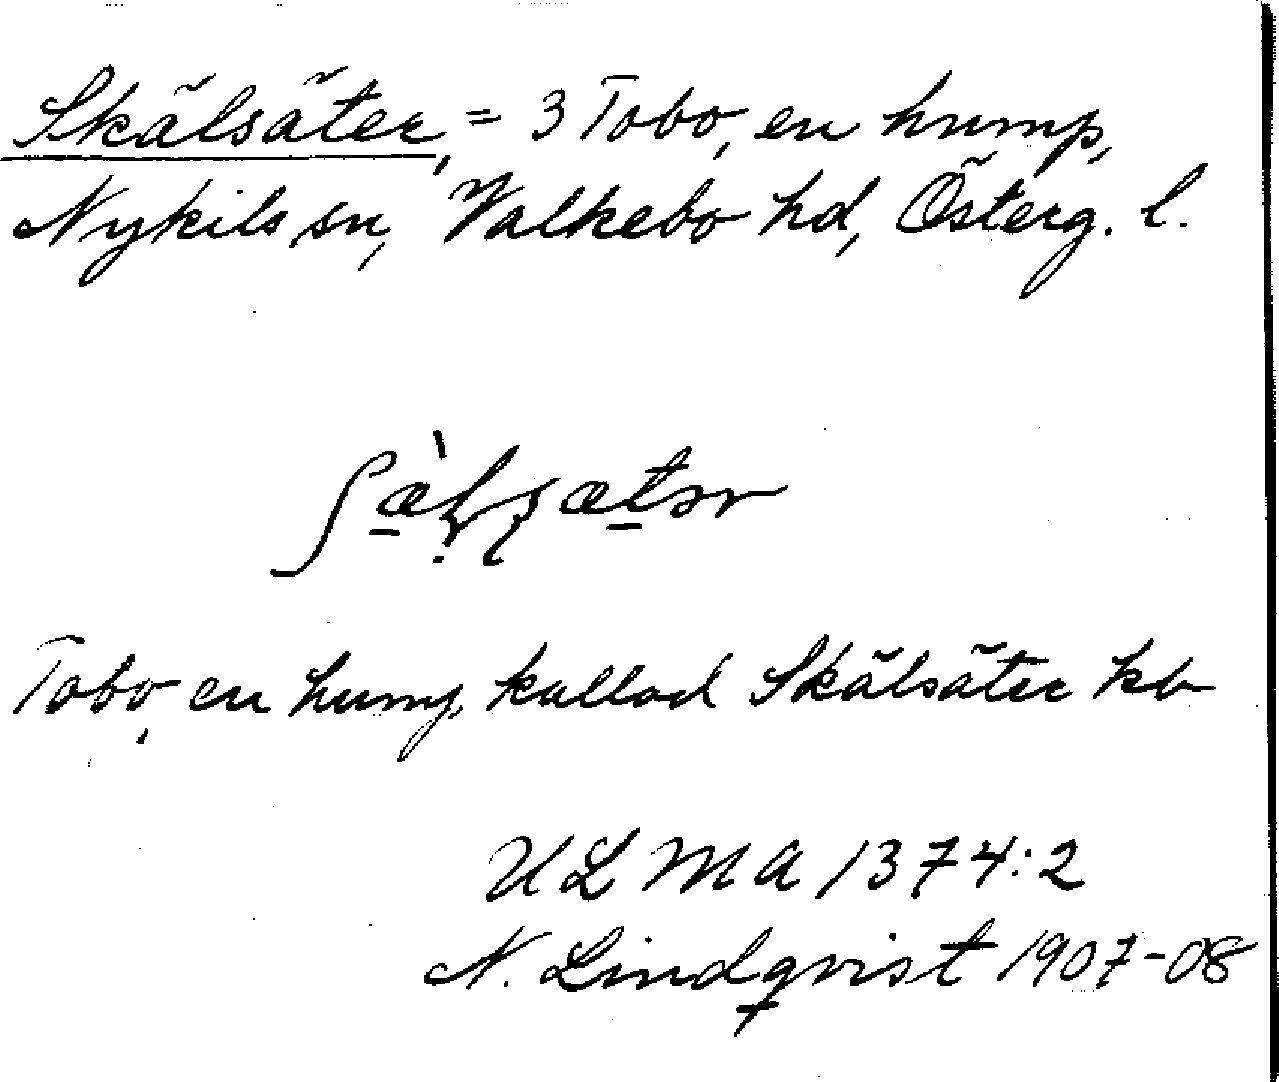 Skälsäter, = 3 Tobo, en hump,
Nykils sn, Valkebo hd, Österg. l.
Tobo, en hump, kallad Skälsäter kb
ULMA 1374:2
N. Lindqvist 1907-08